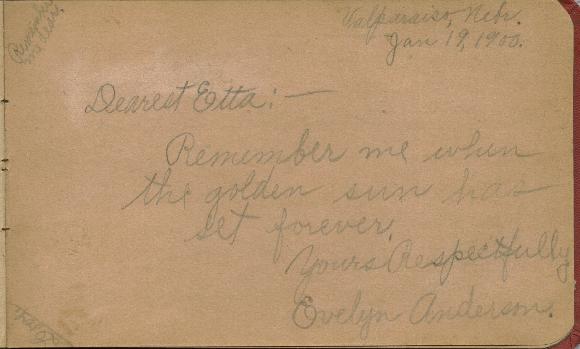 Remember
me dear.
Valparaiso, Nebr.
Jan 19, 1900.
Dearest Etta:—
Remember me when
the golden sun has
set forever.
Yours Respectfully
Evelyn Anderson.